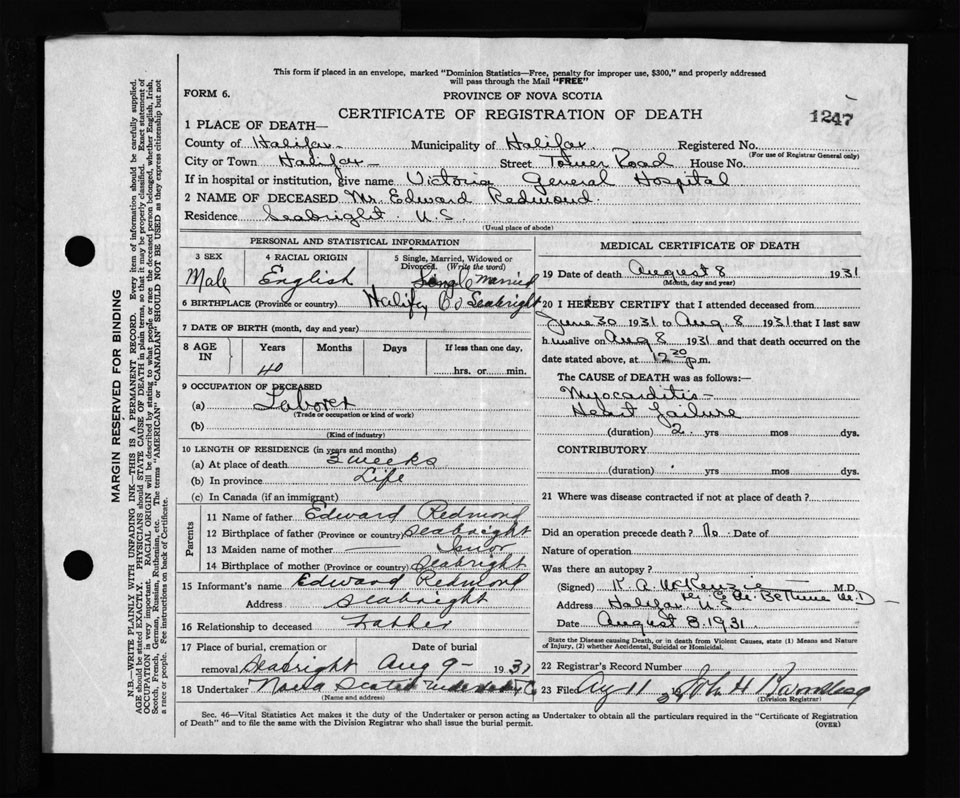 This form if placed in an envelope, marked "Dominion Statistics—Free, penalty for improper use, $300," and properly addressed
will pass through the Mail "FREE"
FORM 6.
PROVINCE OF NOVA SCOTIA
CERTIFICATE OF REGISTRATION OF DEATH
1247
1 PLACE OF DEATH—
County of Halifax Municipality of Halifax Registered No.
(For use of Registrar General only)
City or Town Halifax Street Tower Road House No.
If in hospital or institution, give name Victoria General Hospital
2 NAME OF DECEASED Mr. Edward Redmond.
Residence Seabright. N.S.
(Usual place of abode)
PERSONAL AND STATISTICAL INFORMATION
3 SEX 4 RACIAL ORIGIN 5 Single, Married, Widowed or
Divorced. (Write the word)
Male English Single Married
6 BIRTHPLACE (Province or country) Halifax Co Seabright
7 DATE OF BIRTH (month, day and year)
8 AGE IN Years Months Days If less than one day,
40 hrs. or min.
9 OCCUPATION OF DECEASED
(a) Laborer
(Trade or occupation or kind of work)
(b)
(Kind of industry)
10 LENGTH OF RESIDENCE (in years and months)
(a) At place of death 3 weeks
(b) In province Life
(c) In Canada (if an immigrant)
Parents
11 Name of father Edward Redmond
12 Birthplace of father (Province or country) Seabright
13 Maiden name of mother
14 Birthplace of mother (Province or country) Seabright
15 Informant's name Edward Redmond
Address Seabright
16 Relationship to deceased Father
17 Place of burial, cremation or Date of burial
removal Seabright Aug 9 - 1931
18 Undertaker Nova Scotia Undertaking Co
(Name and address)
MEDICAL CERTIFICATE OF DEATH
19 Date of death August 8 1931
(Month, day and year)
20 I HEREBY CERTIFY that I attended deceased from
June 30 1931 to Aug. 8 1931 that I last saw
him alive on Aug 8 1931 and that death occurred on the
date stated above, at 12 20 p.m.
The CAUSE of DEATH was as follows:—
Myocarditis -
Heart failure
(duration) 2 yrs mos dys.
CONTRIBUTORY
(duration) yrs mos dys.
21 Where was disease contracted if not at place of death?
Did an operation precede death? No Date of
Nature of operation
Was there an autopsy?
(Signed) K. A. McKenzie M.D.
per Bethune M.D.
Address Halifax N.S.
Date August 8. 1931
State the Disease causing Death, or in death from Violent Causes, state (1) Means and Nature
of Injury, (2) whether Accidental, Suicidal or Homicidal.
22 Registrar's Record Number
23 Filed Aug 11 John H
(Division Registrar)
Sec. 46—Vital Statistics Act makes it the duty of the Undertaker or person acting as Undertaker to obtain all the particulars required in the "Certificate of Registration
of Death" and to file the same with the Division Registrar who shall issue the burial permit.
(OVER)
MARGIN RESERVED FOR BINDING
N.B.—WRITE PLAINLY WITH UNFADING INK—THIS IS A PERMANENT RECORD. Every item of information should be carefully supplied.
AGE should be stated EXACTLY. PHYSICIANS should STATE CAUSE OF DEATH in plain terms, so that it may be properly classified. Exact statement of
OCCUPATION is very important. RACIAL ORIGIN will be described by stating to what people or race the deceased person belonged, whether English, Irish,
Scotch, French, German, Russian, Ruthenian, etc. The terms "AMERICAN" or "CANADIAN" SHOULD NOT BE USED as they express citizenship but not
a race or people. Fee instructions on back of Certificate.